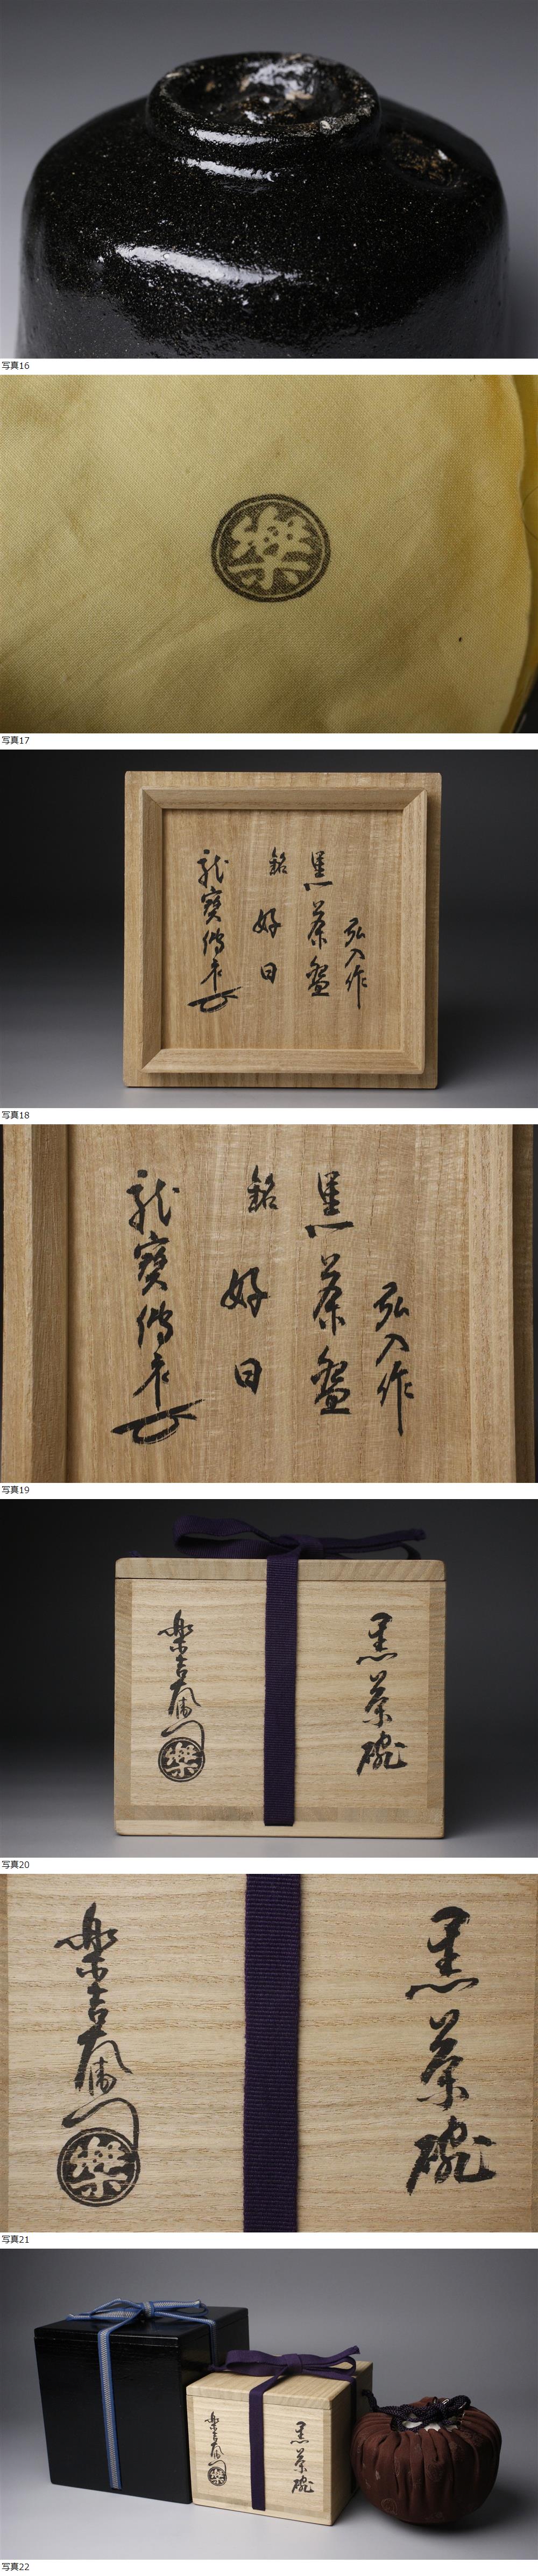 写真16
樂
写真17
弘入作
黒茶盌
銘
好日
写真18
弘入作
黒茶盌
銘
好日
写真19
黒茶碗
樂吉左衛門
樂
写真20
黒茶碗
樂吉左衛門
樂
写真21
黒茶碗
樂吉左衛門
樂
写真22